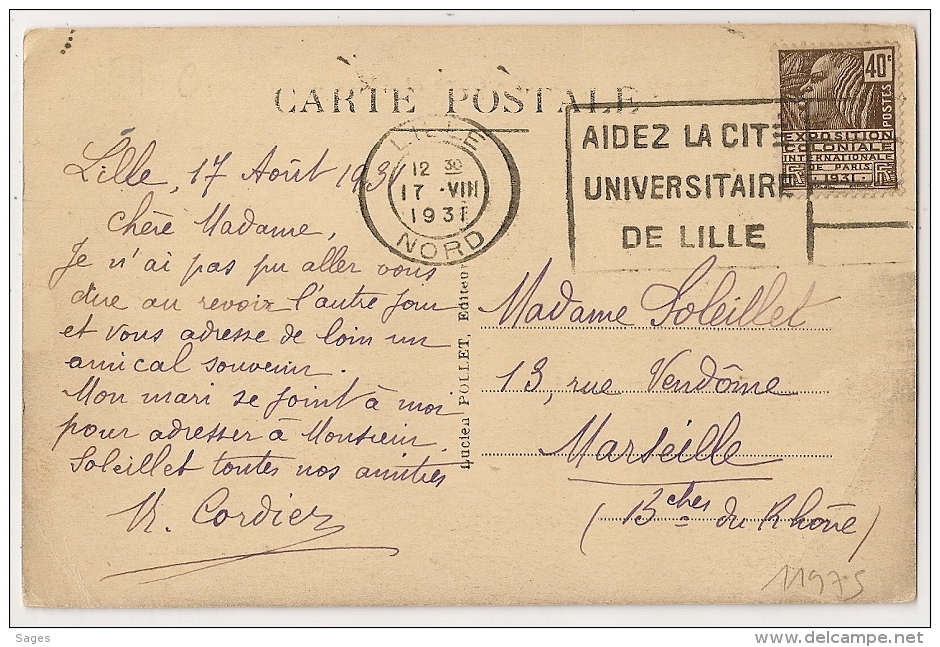 CARTE POSTALE
LILLE
12 30
17 -VIII
1931
NORD
AIDEZ LA CITE
UNIVERSITAIRE
DE LILLE
40c
POSTES
EXPOSITION
COLONIALE
INTERNATIONALE
DE PARIS
1931
Lille, 17 Août 1931
Chère Madame,
Je n'ai pas pu aller vous
dire au revoir l'autre jour
et vous adresse de loin un
amical souvenir.
Mon mari se joint à moi
pour adresser à Monsieur
Soleillet toutes nos amitiés
Cordier
Lucien POLLET, Editeur
Madame Soleillet
13, rue Vendôme
Marseille
(Bches du Rhône)
11975
Sages
delcampe.net